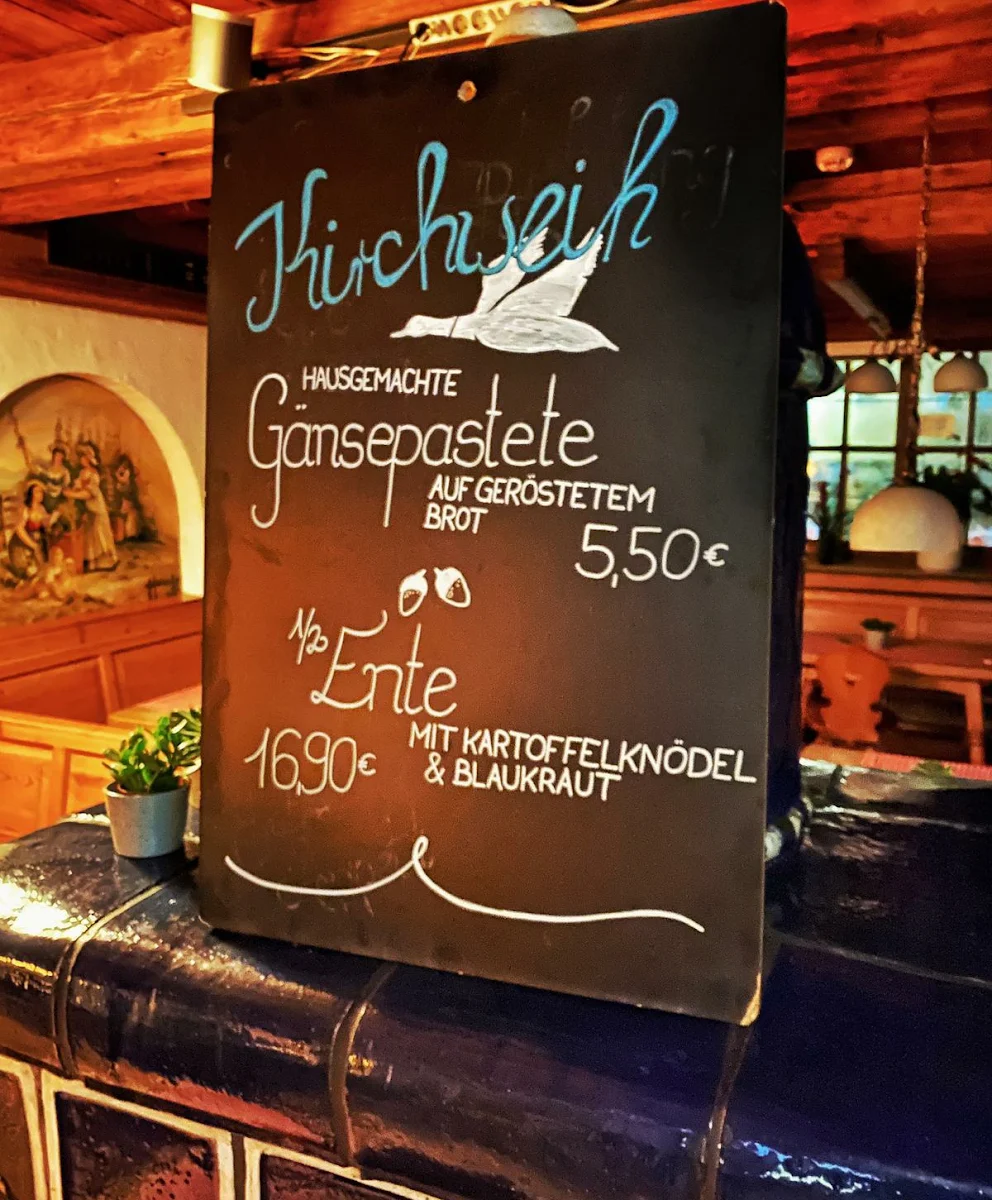 Kirchweih
HAUSGEMACHTE
Gänsepastete
AUF GERÖSTETEM
BROT
5,50€
1/2 Ente
16,90€ MIT KARTOFFELKNÖDEL
& BLAUKRAUT